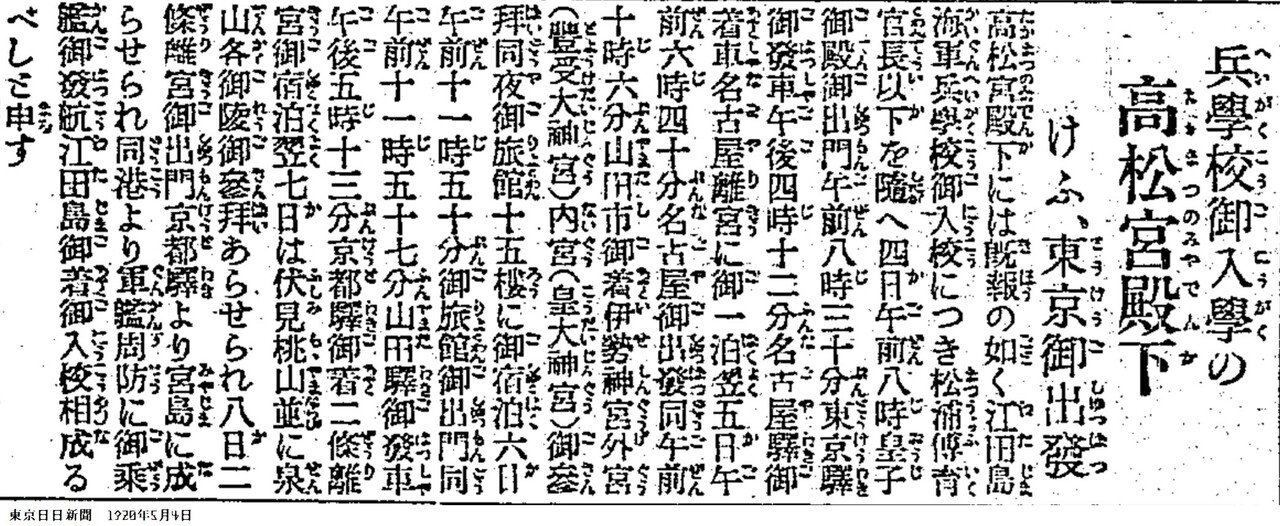 兵學校御入學の
高松宮殿下
けふ、東京御出發
高松宮殿下には既報の如く江田島
海軍兵學校御入校につき松浦傅育
官長以下を隨へ四日午前八時皇子
御殿御出門午前八時三十分東京驛
御發車午後四時十二分名古屋驛御
着車名古屋離宮に御一泊翌五日午
前六時四十分名古屋御出發同午前
十時六分山田市御着伊勢神宮外宮
(豐受大神宮)内宮(皇大神宮)御參
拜同夜御旅館十五樓に御宿泊六日
午前十一時五十分御旅館御出門同
午前十一時五十七分山田驛御發車
午後五時十三分京都驛御着二條離
宮御宿泊翌七日は伏見桃山並に泉
山各御陵御參拜あらせられ八日二
條離宮御出門京都驛より宮島に成
らせられ同港より軍艦周防に御乘
艦御發航江田島御着御入校相成る
べしと申す
東京日日新聞 1920年5月4日